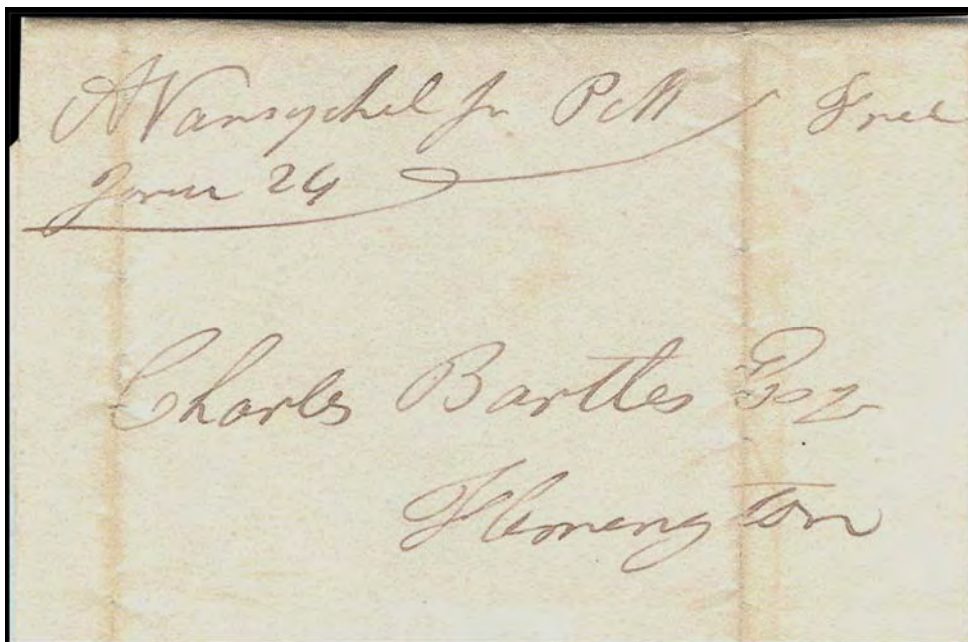 A Vansyckel Jr P M Free
June 24
Charles Bartles Esq
Flemington